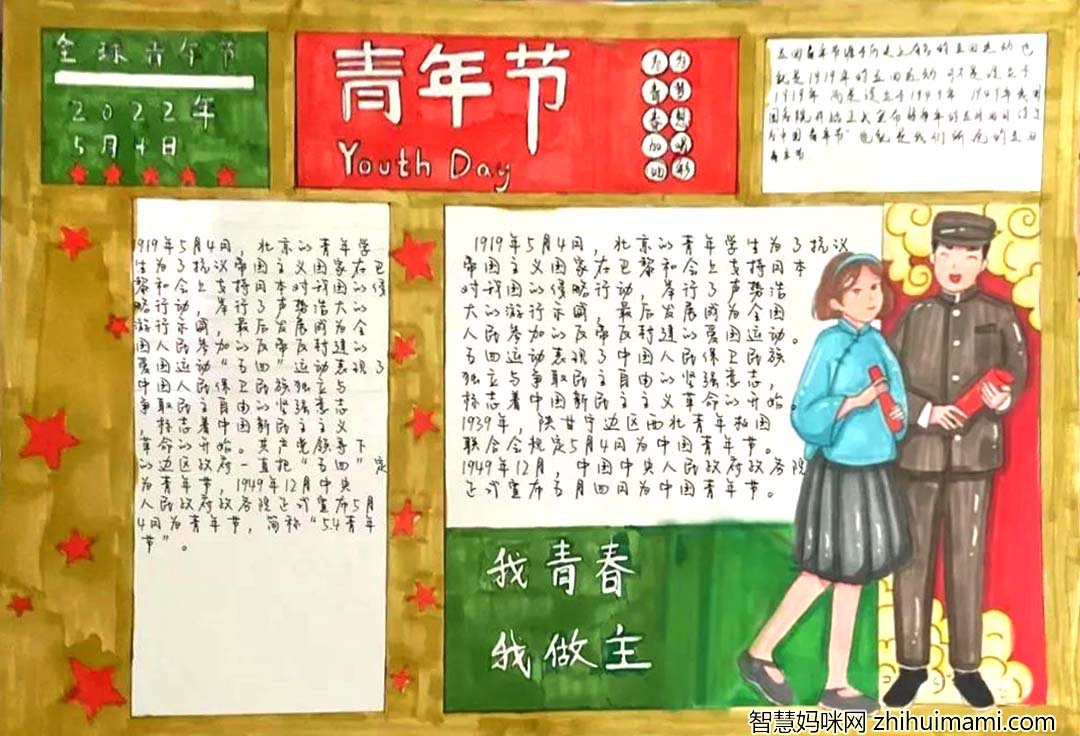 全球青年节
2022年
5月4日
青年节
Youth Day
为为
青梦
春想
加喝
油彩
五四青年节源于历史上有名的五四运动 也
就是1919年的五四运动 可不是设立于
1919年 而是设立于1949年 1949年我国
国务院开始正式宣布将每年的五月四日
中国"青年节"也就是我们所说的五四
青年节
1919年5月4日，北京的青年学
生为了抗议帝国主义国家在巴
黎和会上支持日本对我国的侵
略行动，举行了声势浩大的
游行示威，最后发展成为全
国人民参加的反帝反封建的
爱国运动"五四"运动表现了
中国人民保卫民族独立与
争取民主自由的坚强意志
，标志着中国新民主主义
革命的开始。共产党领导下
的边区政府一直把"五四"定
为青年节，1949年12月中央
人民政府政务院正式宣布5月
4日为青年节，简称"5.4青年
节"。
1919年5月4日，北京的青年学生为了抗议
帝国主义国家在巴黎和会上支持日本
对我国的侵略行动，举行了声势浩
大的游行示威，最后发展成为全国
人民参加的反帝反封建的爱国运动。
五四运动表现了中国人民保卫民族
独立与争取民主自由的坚强意志，
标志着中国新民主主义革命的开始
1939年，陕甘宁边区西北青年救国
联合会规定5月4日为中国青年节。
1949年12月，中国中央人民政府政务院
正式宣布五月四日为中国青年节。
我青春
我做主
智慧妈咪网 zhihuimami.com